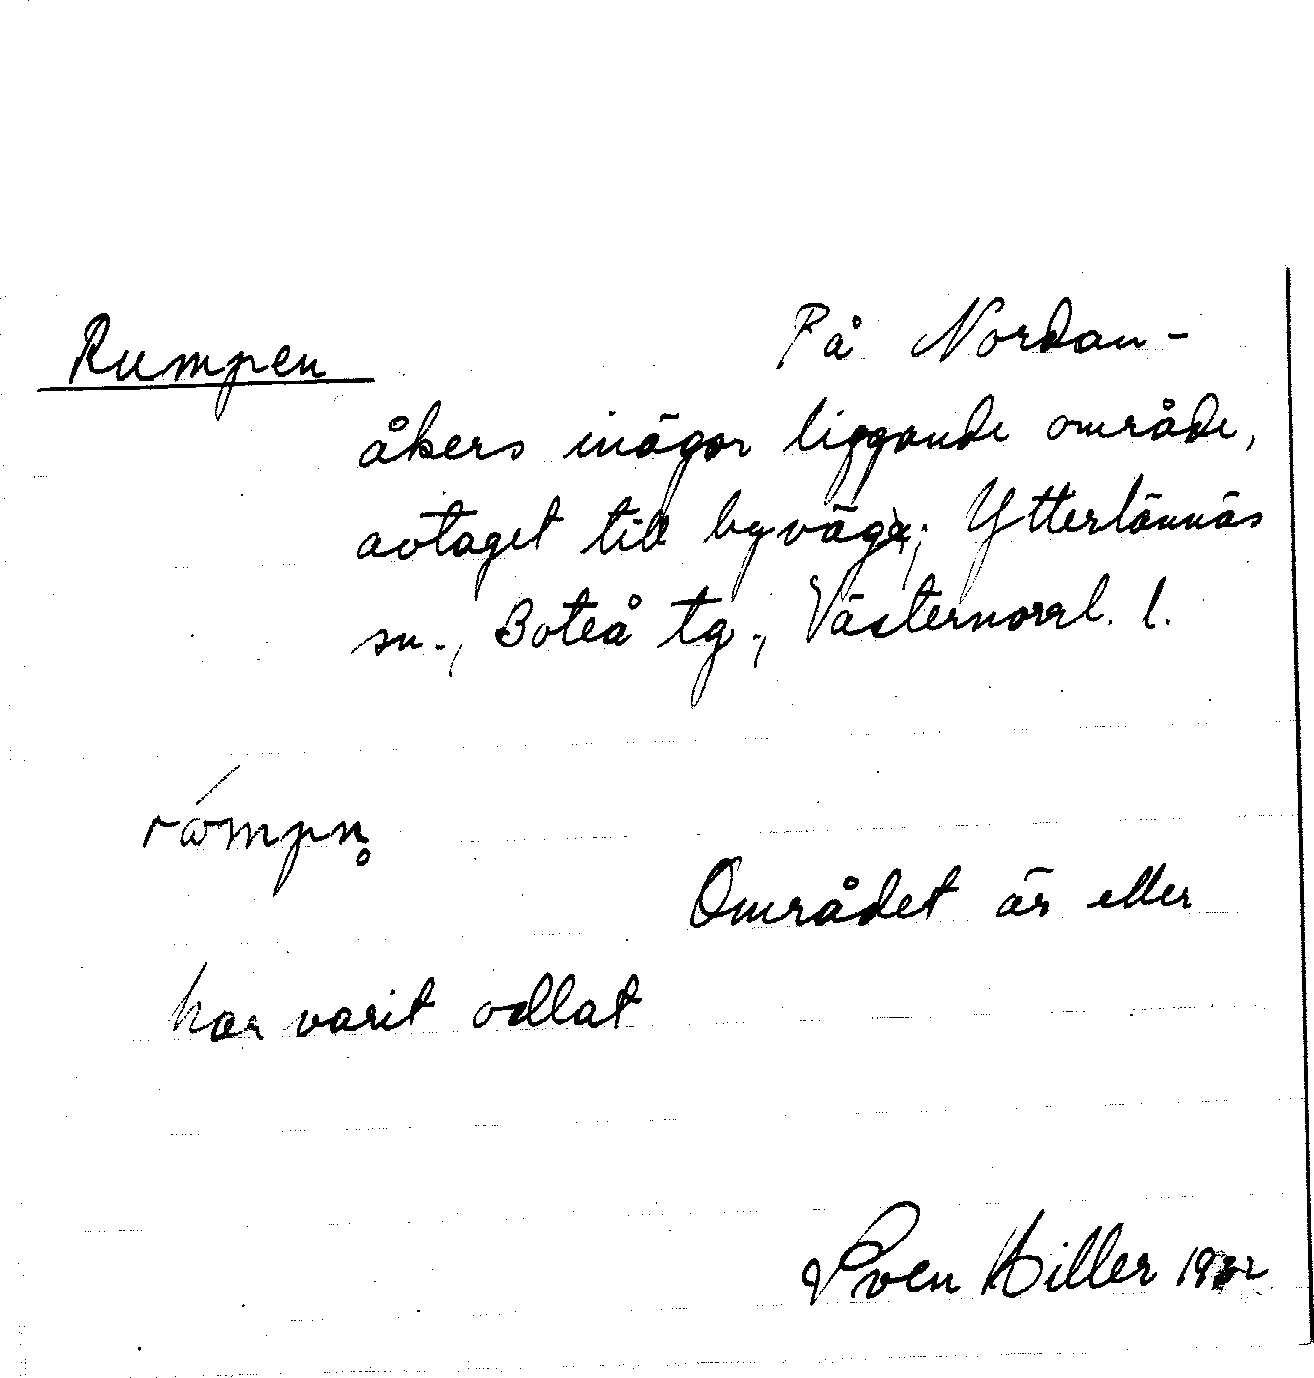 Rumpen På Nordan-
åkers inägor liggande område,
avtaget till byväg; Ytterlännäs
sn., Boteå tg., Västernorrl. l.
rómpn̥
Området är eller
har varit odlat
Sven Hiller